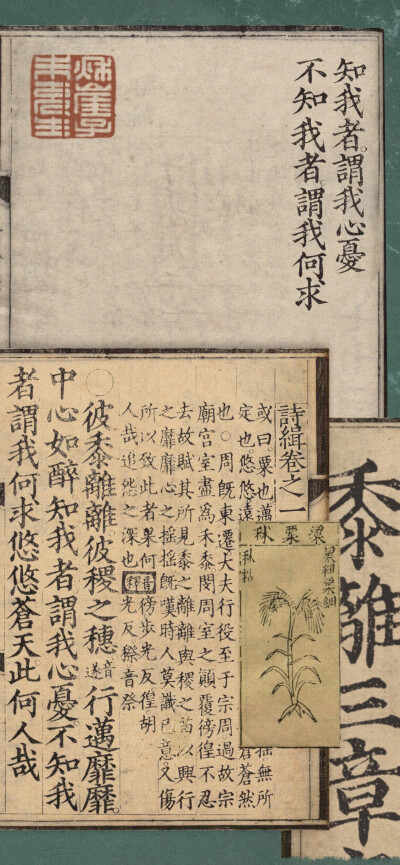 知我者。謂我心憂
不知我者謂我何求
詩緝卷之一
或曰。粟也邁
定也悠悠遠
也。周既東遷大夫行役至于宗周過故宗
廟宮室盡為禾黍閔周室之顛覆徬徨不忍
去故賦其所見黍之離離與稷之苗以興行
之靡靡心之搖搖既嘆時人莫識已意又傷
所以致此者果何
人哉追怨之深也
徬步光反徨胡
光反穄音祭
〇彼黍離離彼稷之穗音遂行邁靡靡。
中心如醉知我者謂我心憂。不知我
者謂我何求悠悠蒼天此何人哉
粱粟秫
無所
蒼蒼然
黍離三章